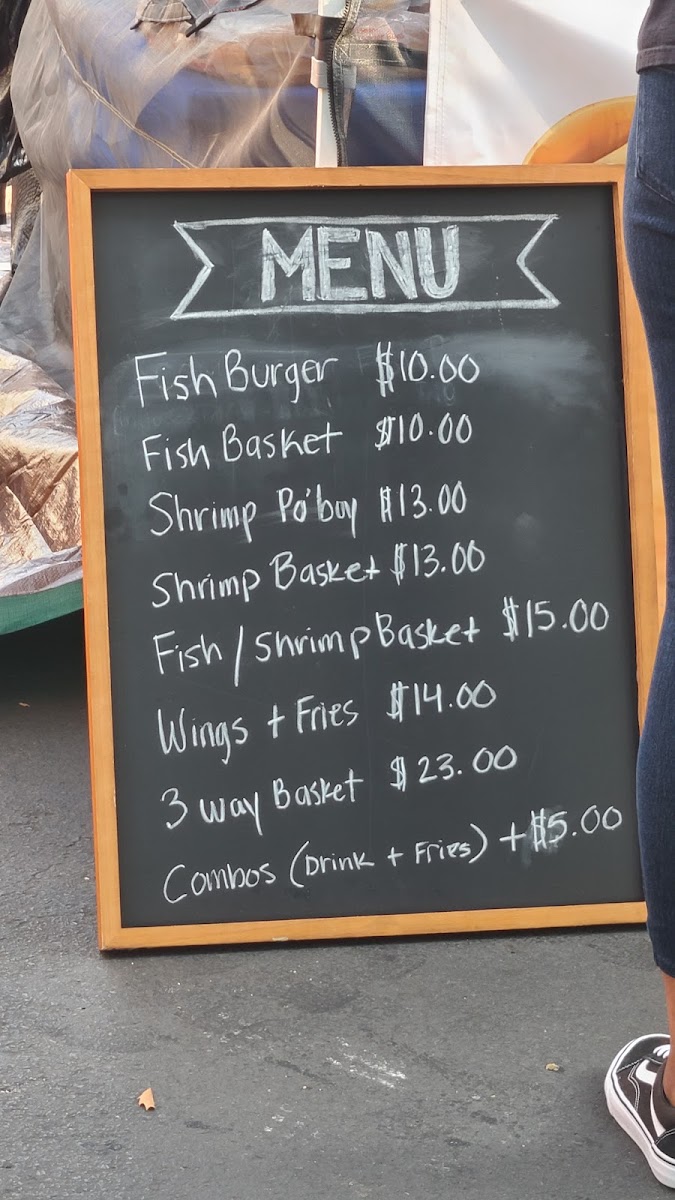 MENU
Fish Burger $10.00
Fish Basket $10.00
Shrimp Po'boy $13.00
Shrimp Basket $13.00
Fish/Shrimp Basket $15.00
Wings + Fries $14.00
3 way Basket $23.00
Combos (Drink + Fries) +$5.00